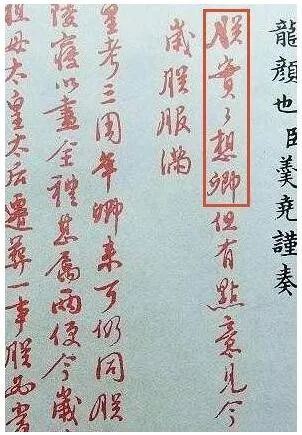 龍顏也臣羹堯謹奏
朕實々想卿但有點意見今
歲朕服滿
皇考三周年卿來可仍同朕
陵寢以盡全禮甚為兩便今歲
祖母太皇太后遷葬一事朕必當